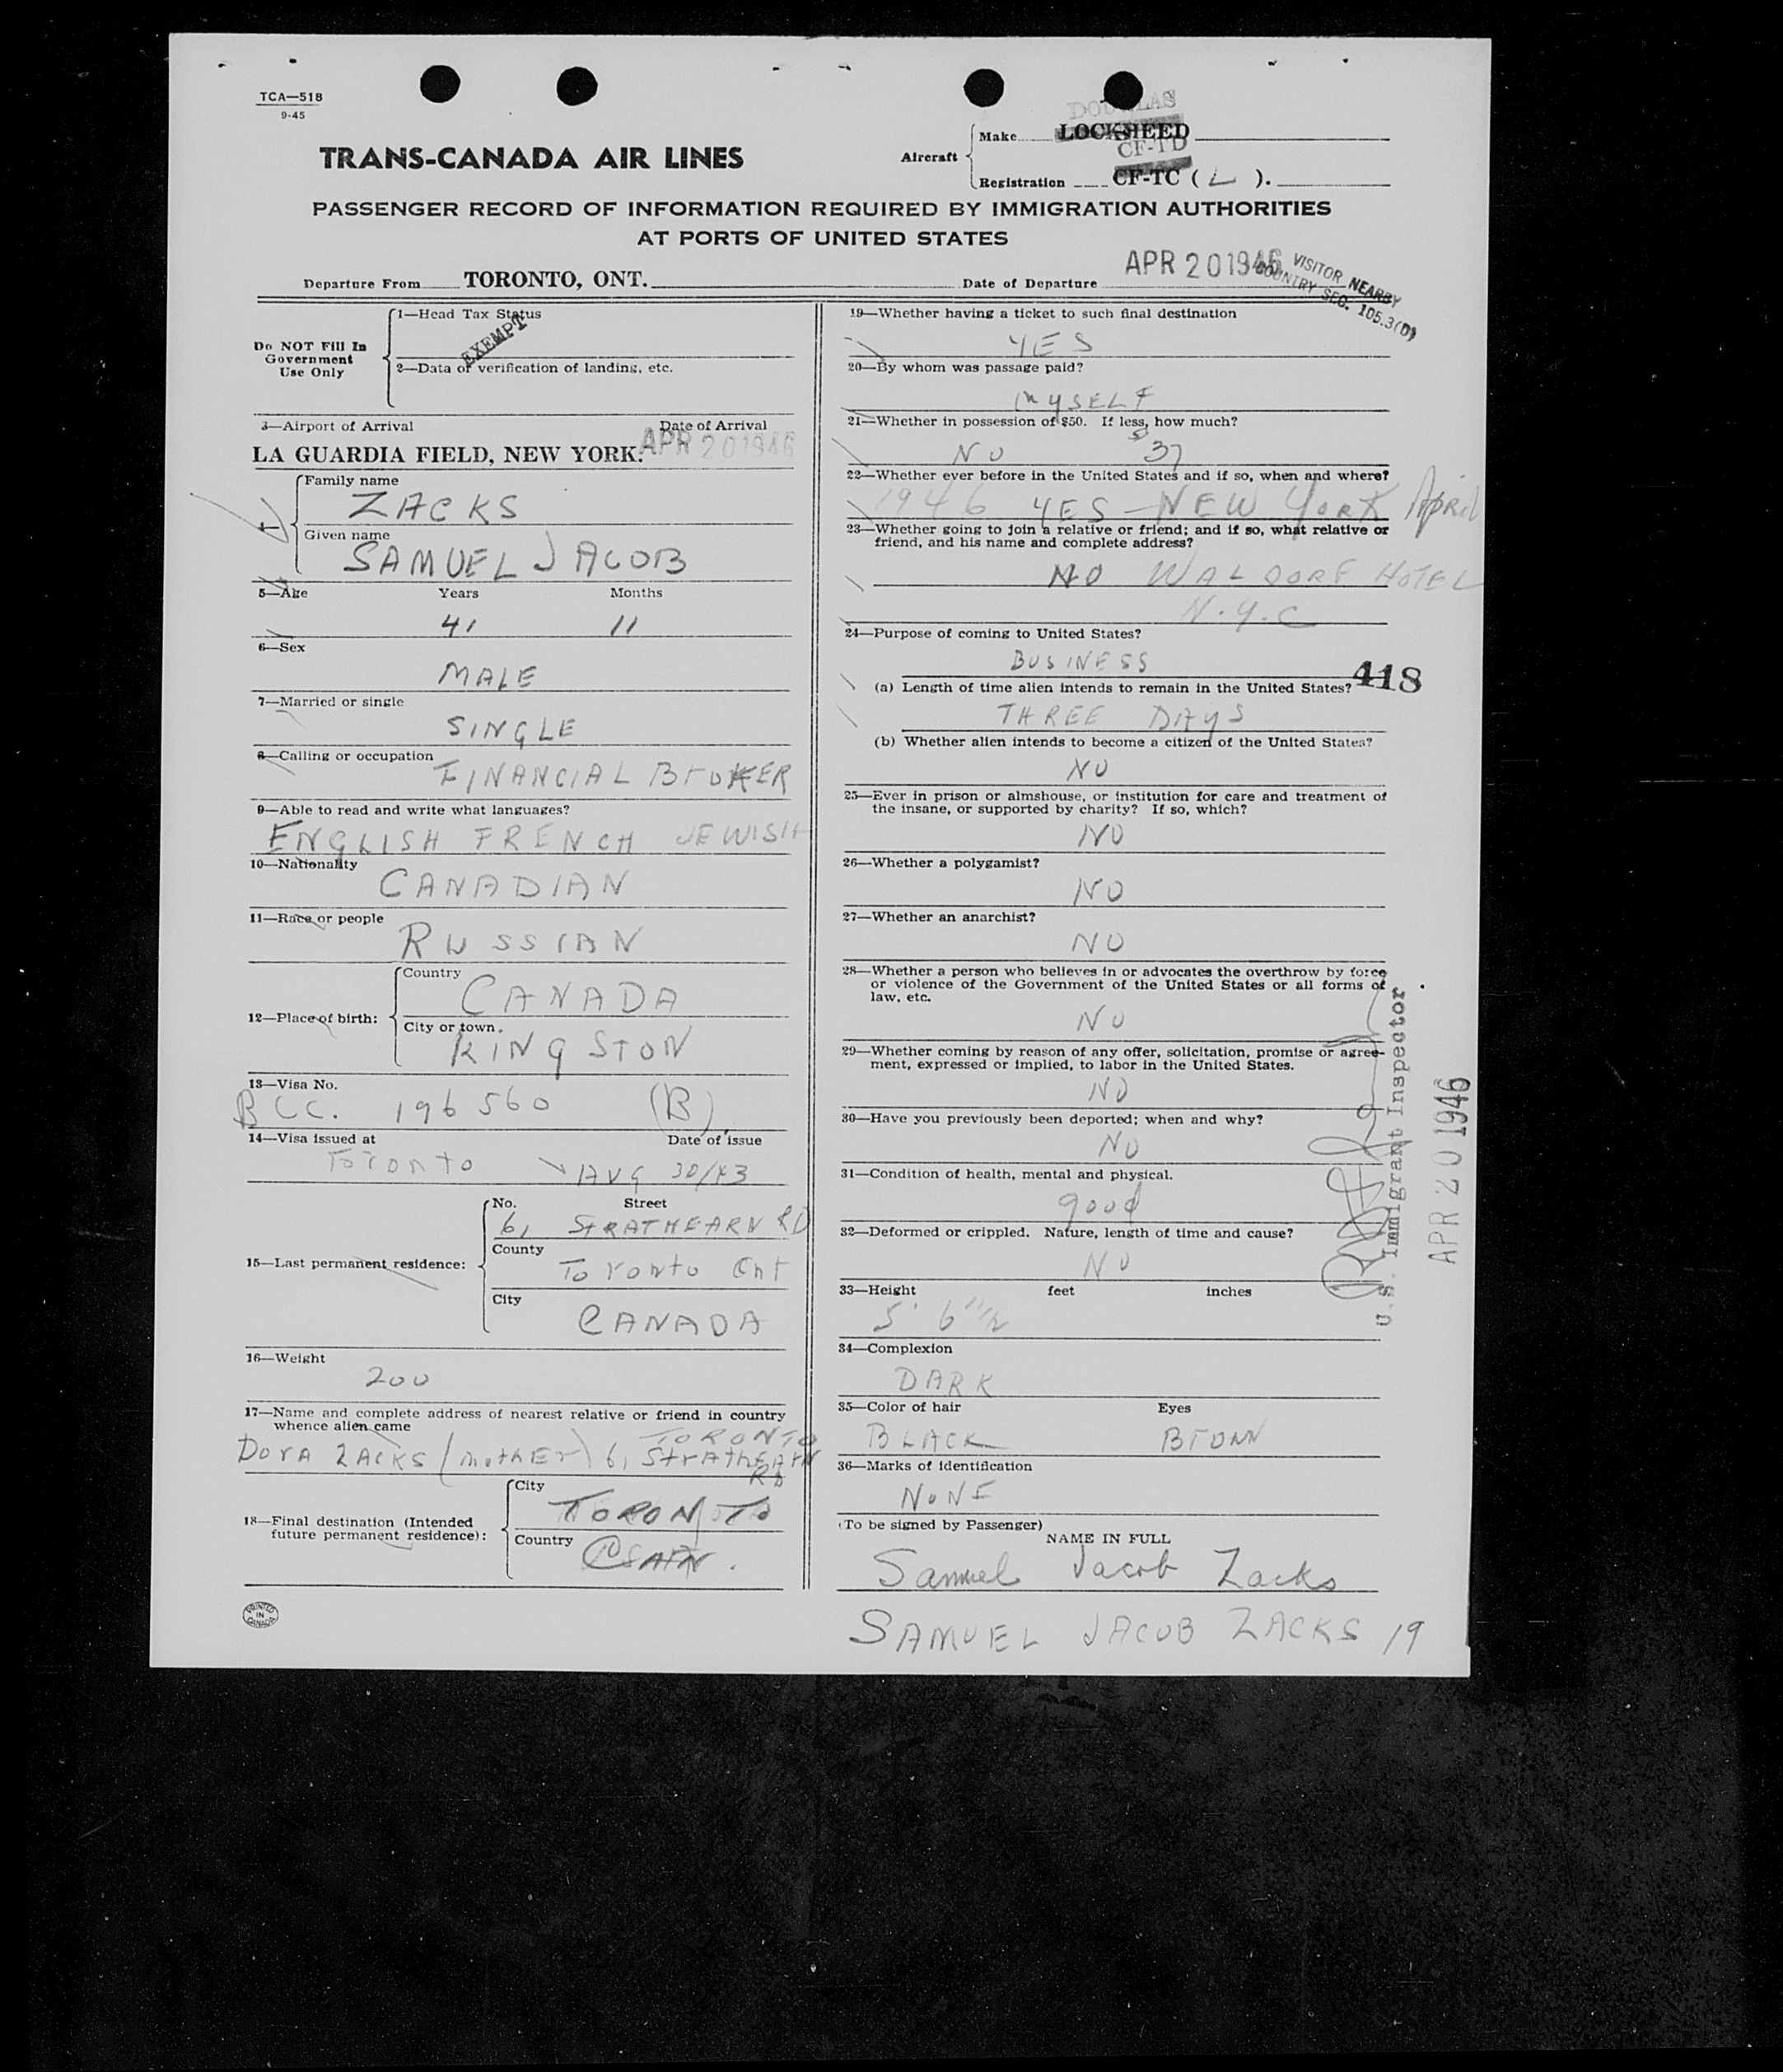 TCA—518
9-45
TRANS-CANADA AIR LINES
Aircraft
DOUGLAS
Make LOCKHEED
CF-TD
Registration CF-TC ( L ).
PASSENGER RECORD OF INFORMATION REQUIRED BY IMMIGRATION AUTHORITIES
AT PORTS OF UNITED STATES
Departure From TORONTO, ONT. Date of Departure APR 20 1946
VISITOR NEARBY
COUNTRY SEC. 105.3(D)
Do NOT Fill In
Government
Use Only
1—Head Tax Status
EXEMPT
2—Data of verification of landing, etc.
3—Airport of Arrival Date of Arrival
LA GUARDIA FIELD, NEW YORK. APR 20 1946
Family name
ZACKS
Given name
SAMUEL JACOB
5—Age Years Months
41 11
6—Sex
MALE
7—Married or single
SINGLE
8—Calling or occupation
FINANCIAL BroKER
9—Able to read and write what languages?
ENGLISH FRENCH JEWISH
10—Nationality
CANADIAN
11—Race or people
RUSSIAN
12—Place of birth:
Country
CANADA
City or town.
KINGSTON
13—Visa No.
BCC. 196560 (B)
14—Visa issued at Date of issue
Toronto AUG 30/43
15—Last permanent residence:
No. Street
61 STRATHEARN RD
County
Toronto Ont
City
CANADA
16—Weight
200
17—Name and complete address of nearest relative or friend in country
whence alien came
TORONTO
DorA ZACKS (mothEr) 61 StrAthEArN
RD
18—Final destination (Intended
future permanent residence):
City
TORONTO
Country
CAN.
PRINTED
IN
CANADA
19—Whether having a ticket to such final destination
YES
20—By whom was passage paid?
mySELF
21—Whether in possession of $50. If less, how much?
NO $37
22—Whether ever before in the United States and if so, when and where?
1946 YES — NEW YORK April
23—Whether going to join a relative or friend; and if so, what relative or
friend, and his name and complete address?
NO WALDORF HOTEL
N.Y.C
24—Purpose of coming to United States?
BUSINESS
418
(a) Length of time alien intends to remain in the United States?
THREE DAYS
(b) Whether alien intends to become a citizen of the United States?
NO
25—Ever in prison or almshouse, or institution for care and treatment of
the insane, or supported by charity? If so, which?
NO
26—Whether a polygamist?
NO
27—Whether an anarchist?
NO
28—Whether a person who believes in or advocates the overthrow by force
or violence of the Government of the United States or all forms of
law, etc.
NO
29—Whether coming by reason of any offer, solicitation, promise or agree-
ment, expressed or implied, to labor in the United States.
NO
30—Have you previously been deported; when and why?
NO
31—Condition of health, mental and physical.
good
32—Deformed or crippled. Nature, length of time and cause?
NO
33—Height feet inches
5' 6"1/2
34—Complexion
DARK
35—Color of hair Eyes
BLACK BroWN
36—Marks of identification
NONE
(To be signed by Passenger)
NAME IN FULL
Samuel Jacob Zacks
SAMUEL JACOB ZACKS 19
U.S. Immigrant Inspector
APR 20 1946